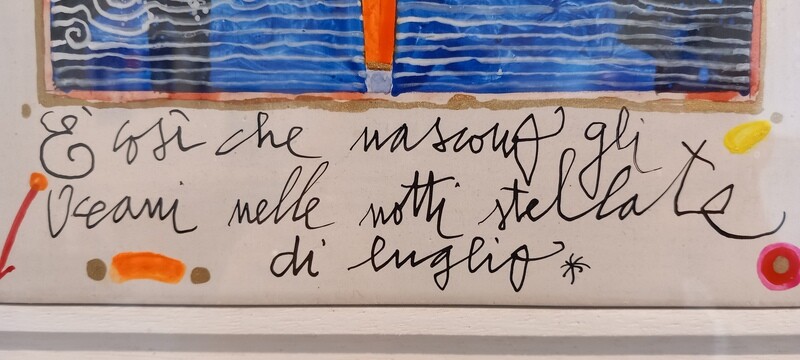 È così che nascono gli
Oceani nelle notti stellate
di luglio*